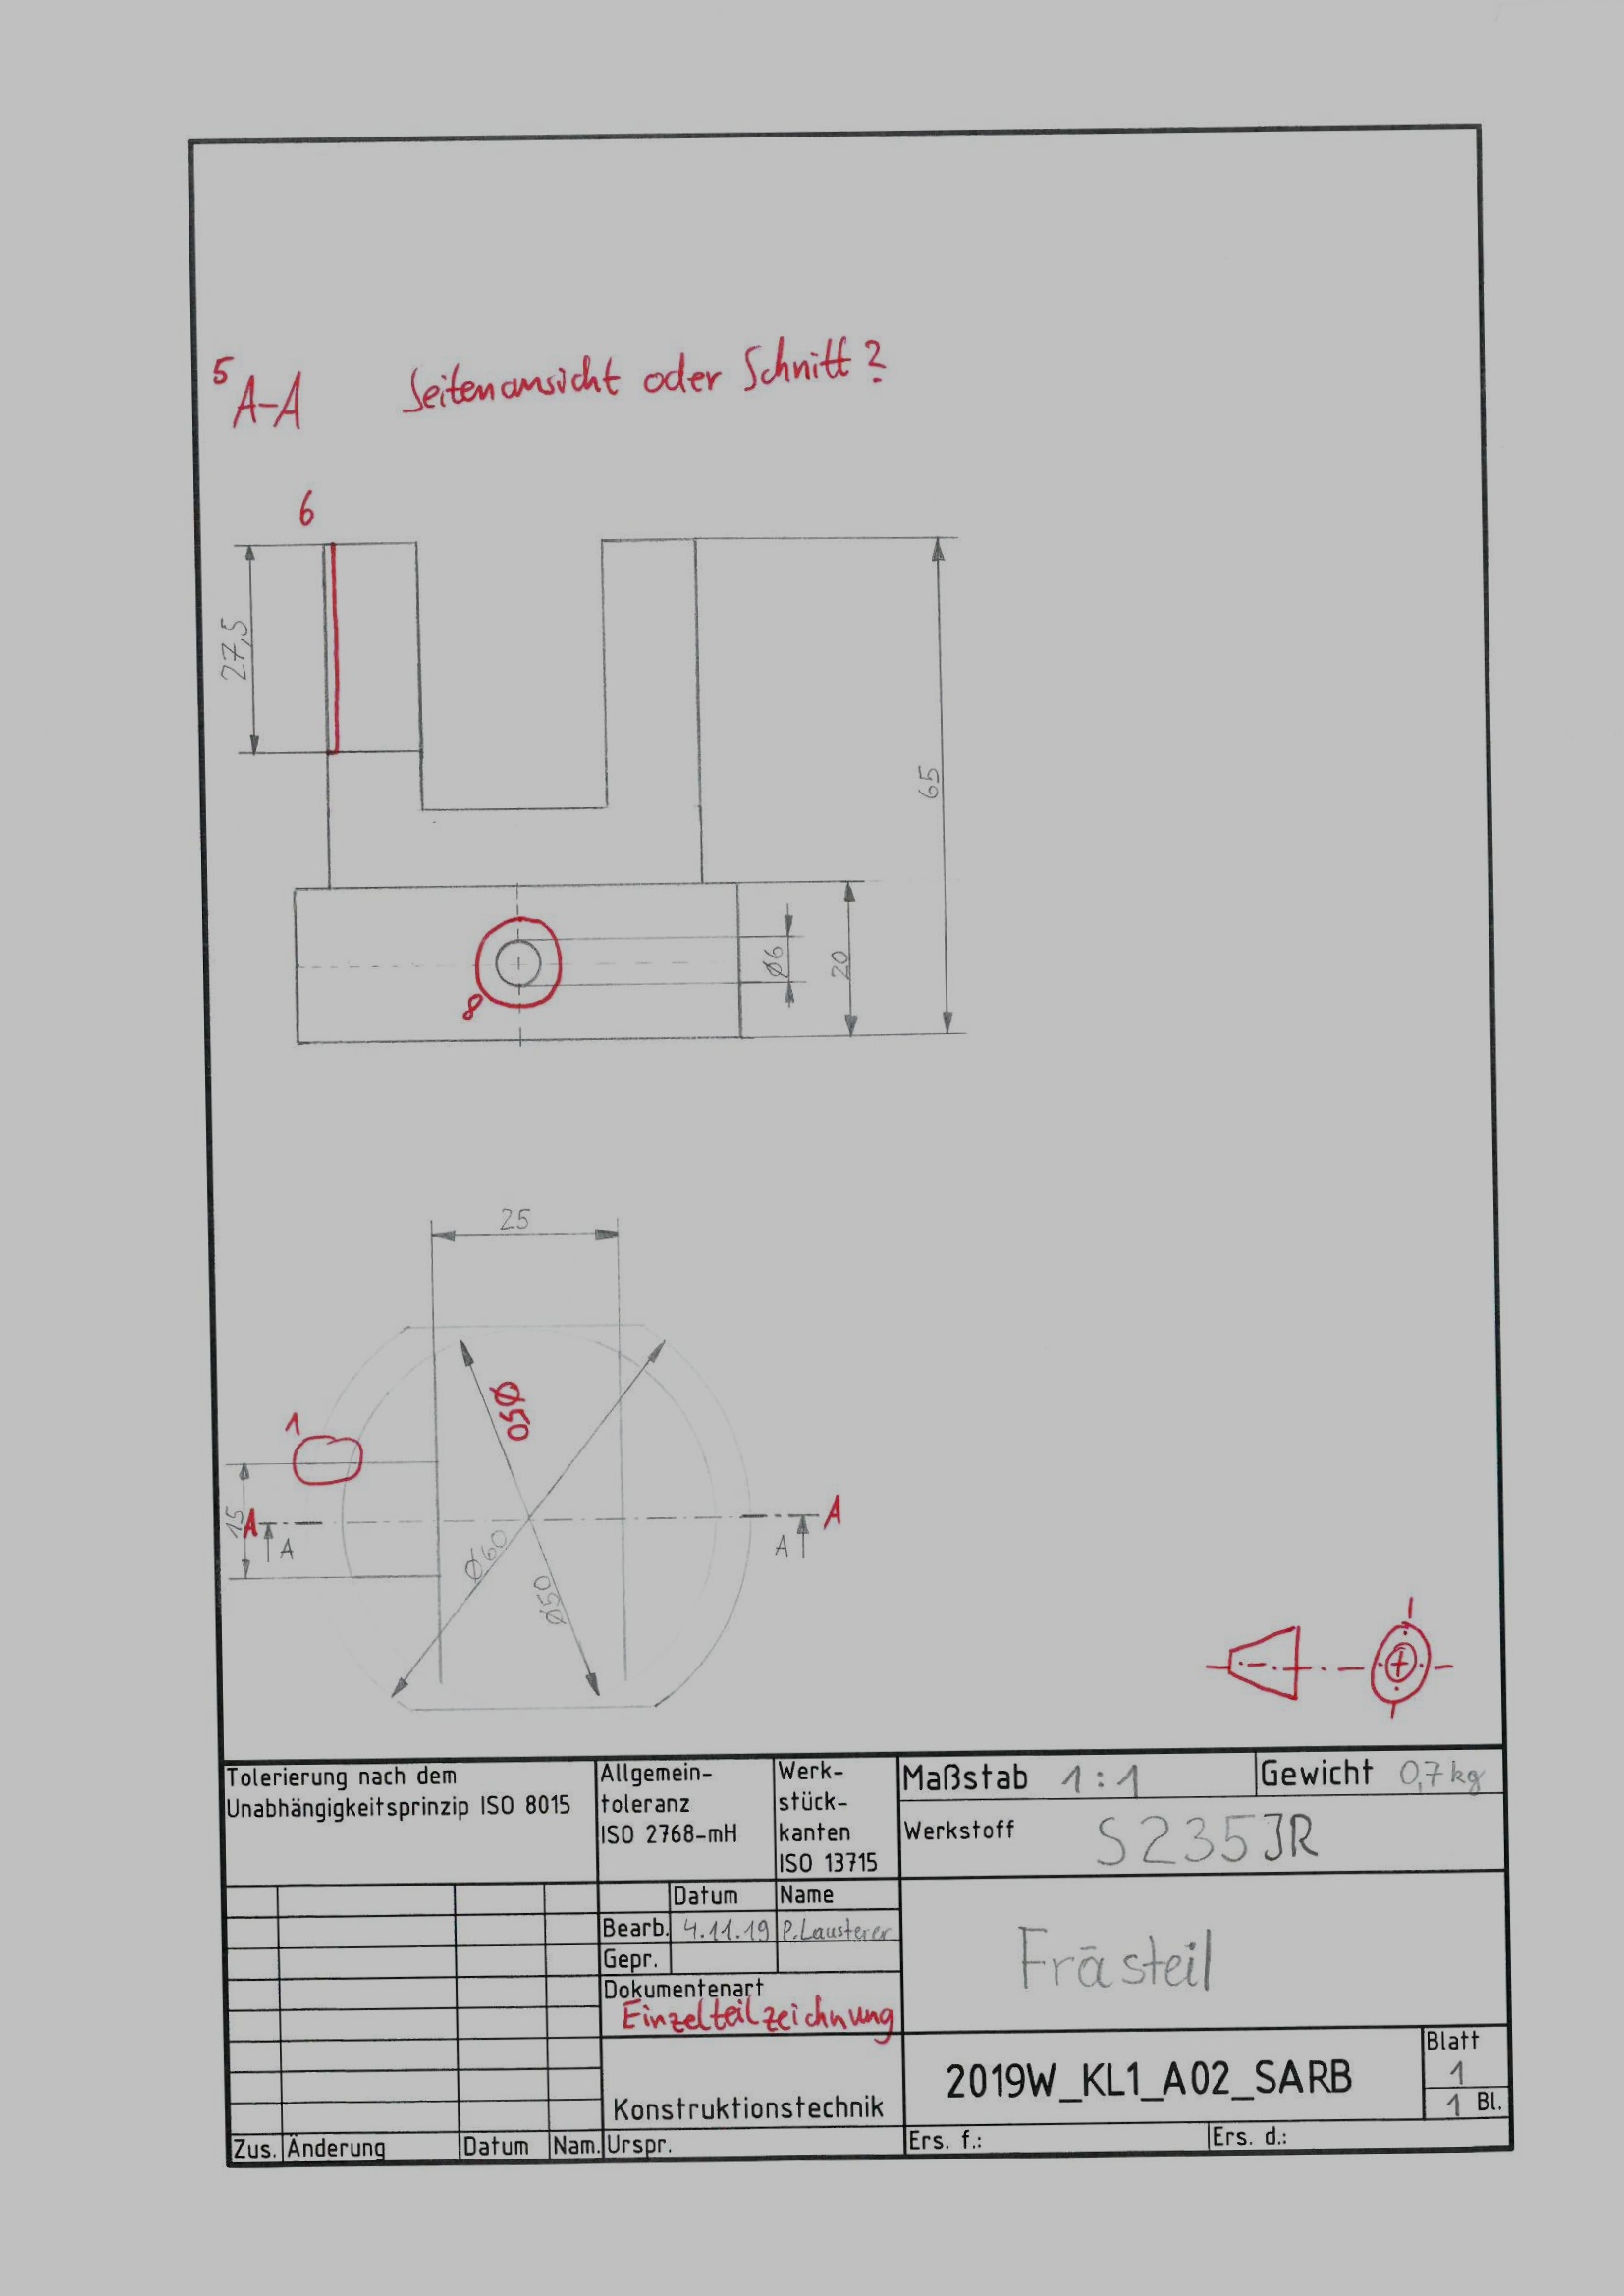 5
A-A Seitenansicht oder Schnitt?
6
27,5
65
8
Ø6
20
25
Ø50
1
15
A
A
A
A
Ø60
Ø50
Tolerierung nach dem
Unabhängigkeitsprinzip ISO 8015
Allgemein-
toleranz
ISO 2768-mH
Werk-
stück-
kanten
ISO 13715
Maßstab 1:1
Gewicht 0,7kg
Werkstoff S235JR
Datum Name
Bearb. 4.11.19 P. Lausterer
Gepr.
Dokumentenart
Einzelteilzeichnung
Frästeil
Konstruktionstechnik
2019W_KL1_A02_SARB
Blatt
1
1 Bl.
Zus. Änderung Datum Nam. Urspr. Ers. f.: Ers. d.: